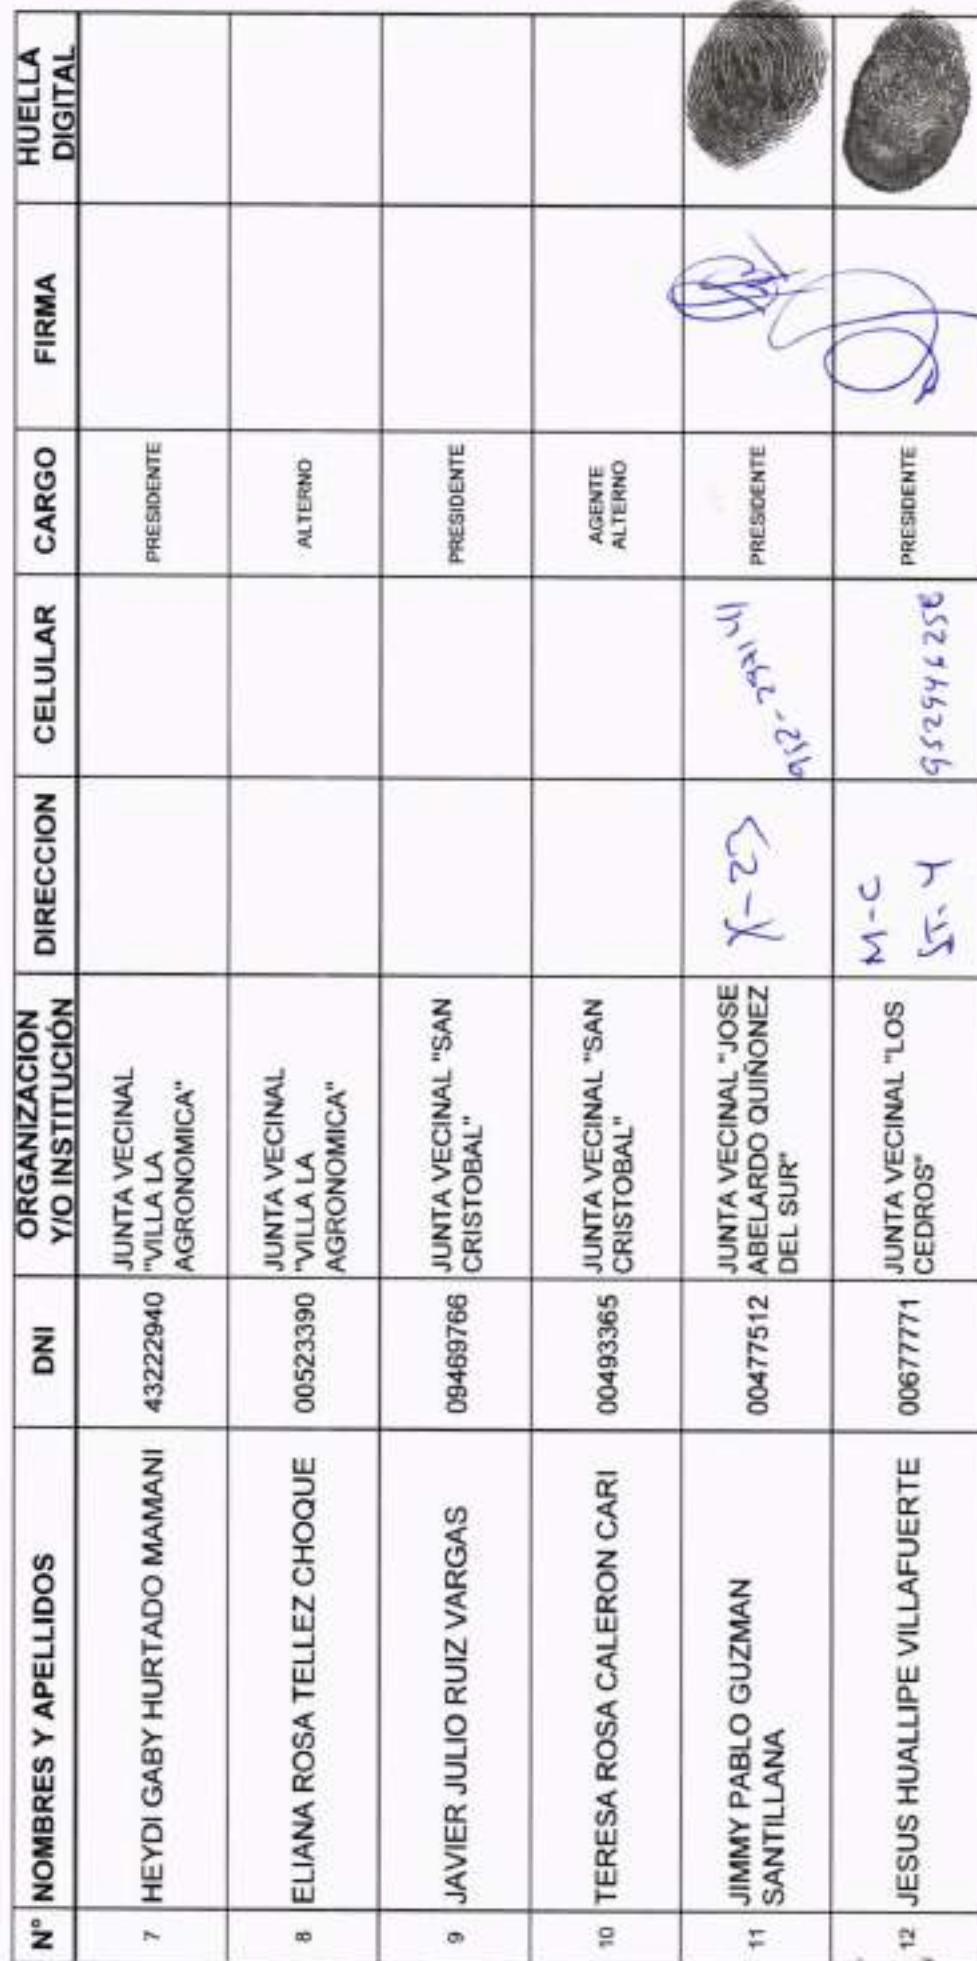 N° NOMBRES Y APELLIDOS DNI ORGANIZACION Y/O INSTITUCIÓN DIRECCION CELULAR CARGO FIRMA HUELLA DIGITAL
7 HEYDI GABY HURTADO MAMANI 43222940 JUNTA VECINAL "VILLA LA AGRONOMICA" PRESIDENTE
8 ELIANA ROSA TELLEZ CHOQUE 00523390 JUNTA VECINAL "VILLA LA AGRONOMICA" ALTERNO
9 JAVIER JULIO RUIZ VARGAS 09469766 JUNTA VECINAL "SAN CRISTOBAL" PRESIDENTE
10 TERESA ROSA CALERON CARI 00493365 JUNTA VECINAL "SAN CRISTOBAL" AGENTE ALTERNO
11 JIMMY PABLO GUZMAN SANTILLANA 00477512 JUNTA VECINAL "JOSE ABELARDO QUIÑONEZ DEL SUR" X-23 PRESIDENTE
12 JESUS HUALLIPE VILLAFUERTE 00677771 JUNTA VECINAL "LOS CEDROS" M-C 952946258 PRESIDENTE